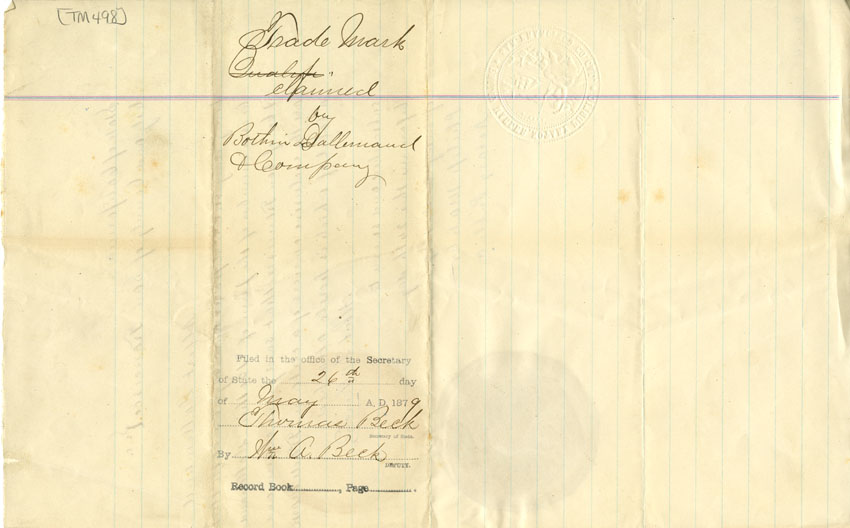 [TM498]
Trade Mark
claimed
by
Bothin Dallemand
& Company
Filed in the office of the Secretary
of State the 26th day
of May A.D. 1879
Thomas Beck
Secretary of State.
By Wm A. Beck
DEPUTY.
Record Book ............, Page ............